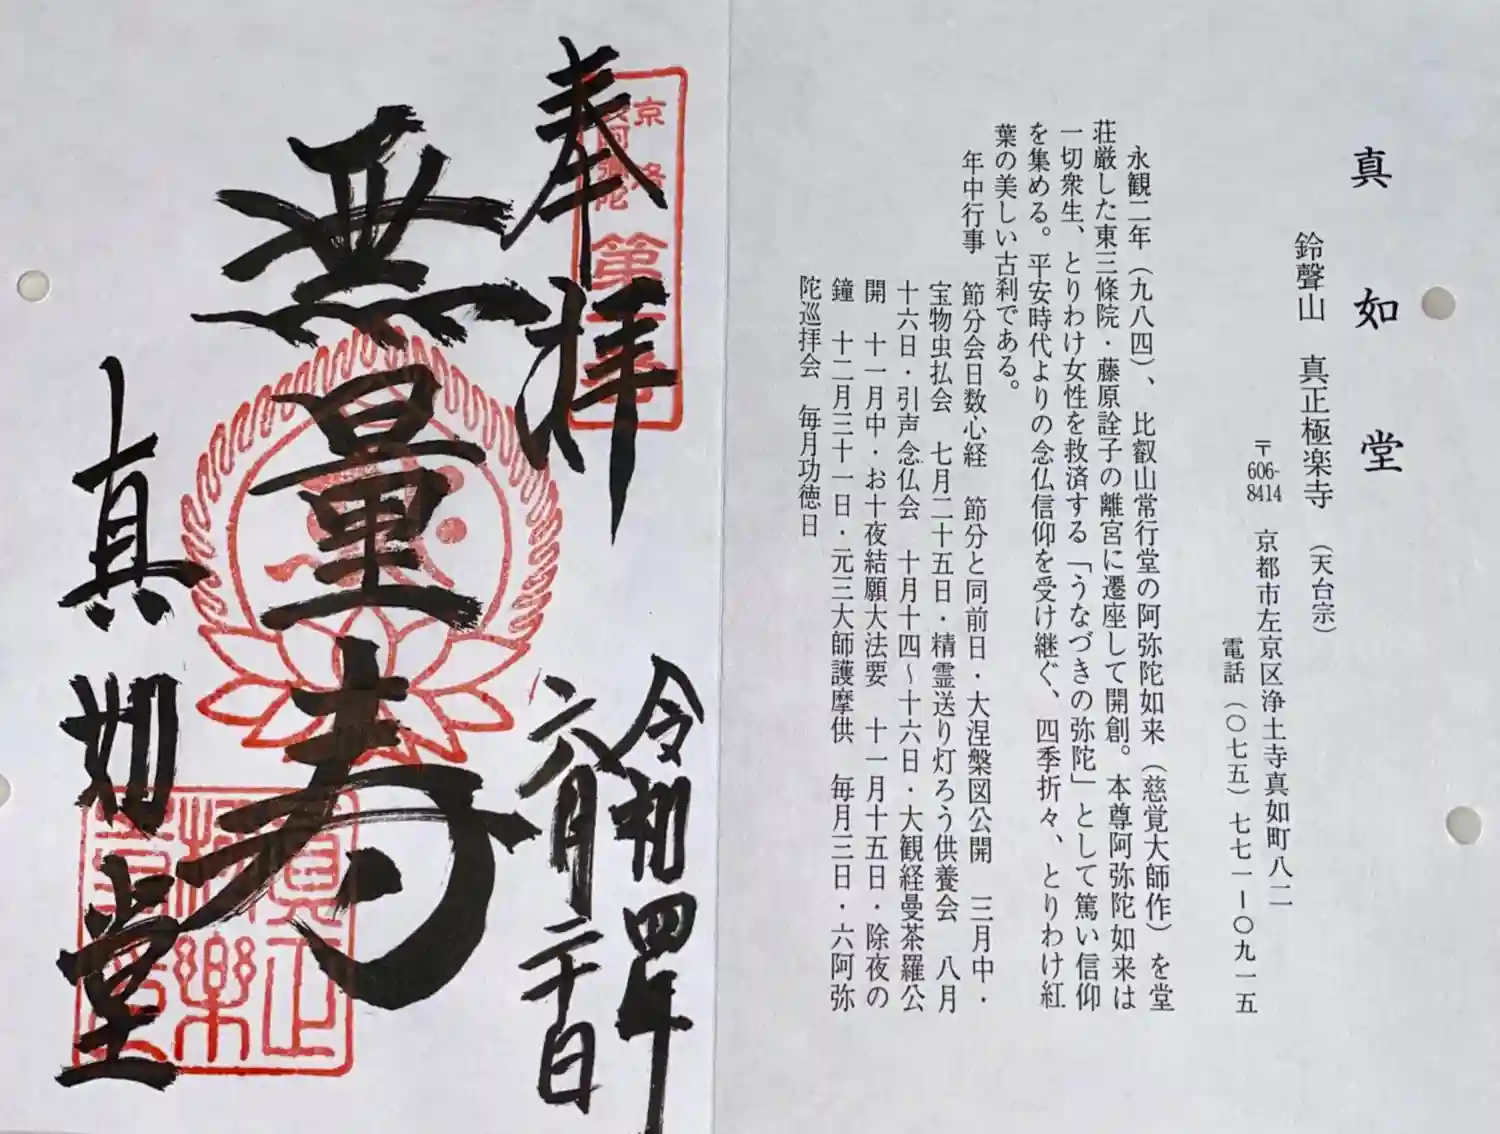 真如堂
鈴聲山　真正極楽寺　（天台宗）
〒606-8414　京都市左京区浄土寺真如町八二
電話（〇七五）七七一ー〇九一五
永観二年（九八四）、比叡山常行堂の阿弥陀如来（慈覚大師作）を堂
荘厳した東三條院・藤原詮子の離宮に遷座して開創。本尊阿弥陀如来は
一切衆生、とりわけ女性を救済する「うなづきの弥陀」として篤い信仰
を集める。平安時代よりの念仏信仰を受け継ぐ、四季折々、とりわけ紅
葉の美しい古刹である。
年中行事　節分会日数心経　節分と同前日・大涅槃図公開　三月中・
宝物虫払会　七月二十五日・精霊送り灯ろう供養会　八月
十六日・引声念仏会　十月十四～十六日・大観経曼茶羅公
開　十一月中・お十夜結願大法要　十一月十五日・除夜の
鐘　十二月三十一日・元三大師護摩供　毎月三日・六阿弥
陀巡拝会　毎月功徳日
奉拝
令和四年
六月二十日
無量寿
真如堂
真正
極楽